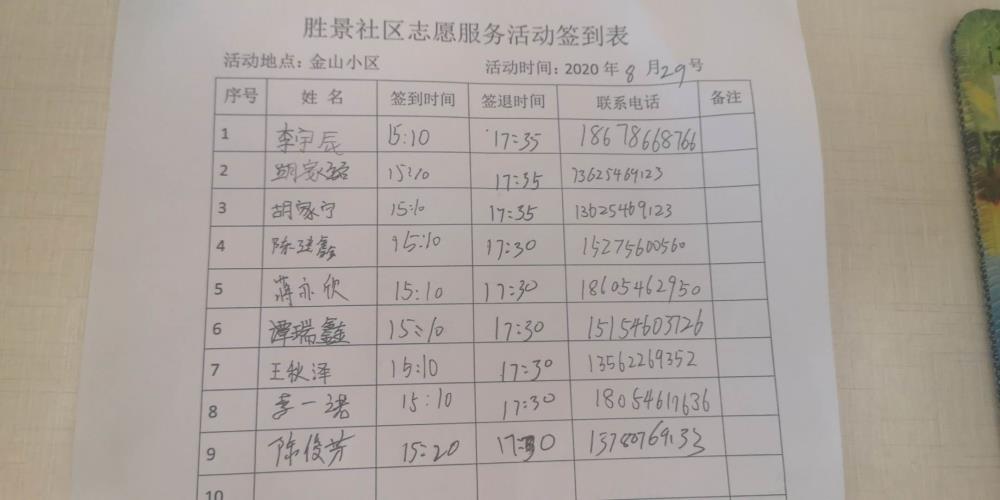 胜景社区志愿服务活动签到表
活动地点：金山小区 活动时间：2020 年 8 月 29 号
序号 姓 名 签到时间 签退时间 联系电话 备注
1 李宇辰 15:10 17:35 18678668766
2 胡家 15:10 17:35 13625469123
3 胡家宁 15:10 17:35 13625469123
4 陈建鑫 15:10 17:30 15275600560
5 蒋亦欣 15:10 17:30 18605462950
6 谭瑞鑫 15:10 17:30 15154603726
7 王秋泽 15:10 17:30 13562269352
8 李一诺 15:10 17:30 18054617636
9 陈俊芳 15:20 17:30
10